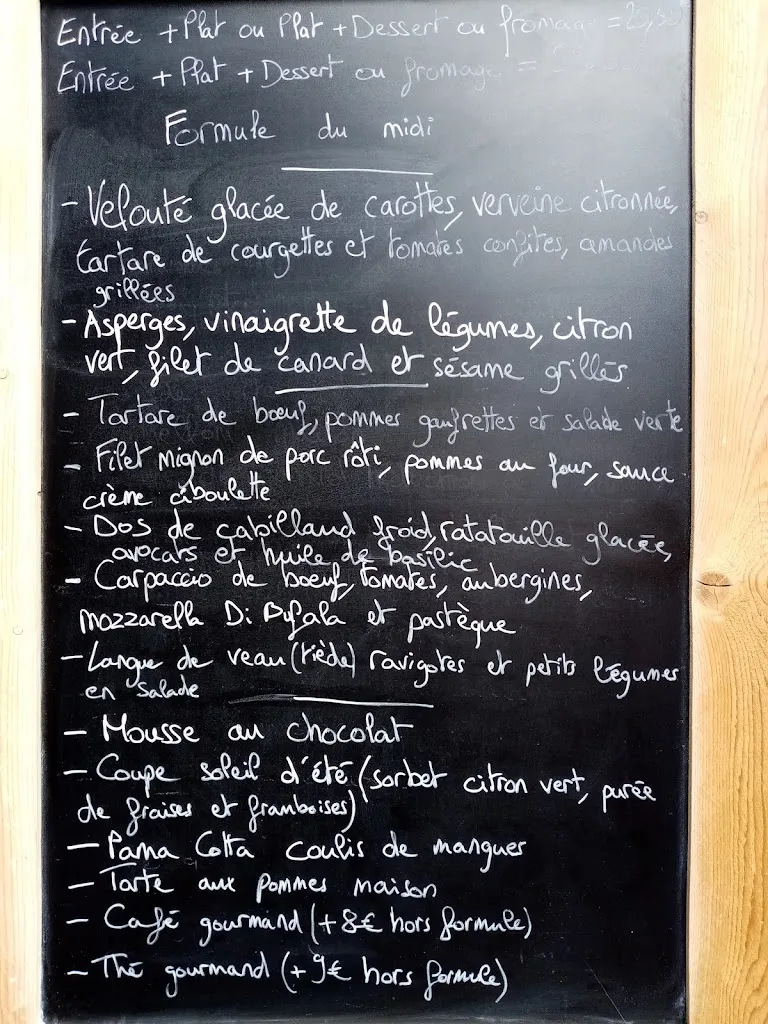 Entrée + Plat ou Plat + Dessert ou fromage =
Entrée + Plat + Dessert ou fromage =
Formule du midi
- Velouté glacée de carottes, verveine citronnée,
tartare de courgettes et tomates confites, amandes
grillées
- Asperges, vinaigrette de légumes, citron
vert, filet de canard et sésame grillés
- Tartare de bœuf, pommes gaufrettes et salade verte
- Filet mignon de porc rôti, pommes au four, sauce
crème ciboulette
- Dos de cabillaud froid, ratatouille glacée,
avocats et huile de basilic
- Carpaccio de boeuf, tomates, aubergines,
mozzarella Di Bufala et pastèque
- Langue de veau (tiède) ravigotes et petits légumes
en salade
- Mousse au chocolat
- Coupe soleil d'été (sorbet citron vert, purée
de fraises et framboises)
- Pana Cotta coulis de mangues
- Tarte aux pommes maison
- Café gourmand (+8€ hors formule)
- Thé gourmand (+9€ hors formule)